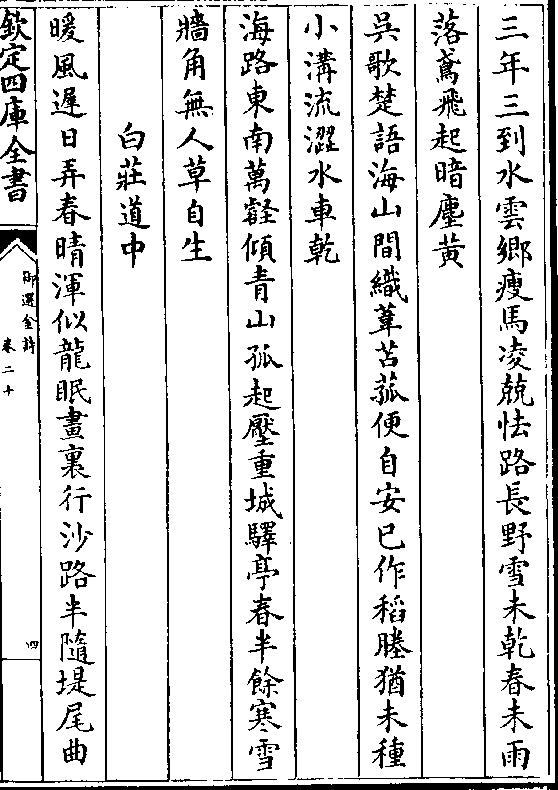 三年三到水雲鄉瘦馬凌兢怯路長野雪未乾春未雨
落鳶飛起暗塵黃
吳歌楚語海山間織葦苫菰便自安已作稻塍猶未種
小溝流澀水車乾
海路東南萬壑傾青山孤起壓重城驛亭春半餘寒雪
牆角無人草自生
白莊道中
暖風遲日弄春晴渾似龍眠畫裏行沙路半隨堤尾曲
欽定四庫全書
御選金詩
卷二十
四